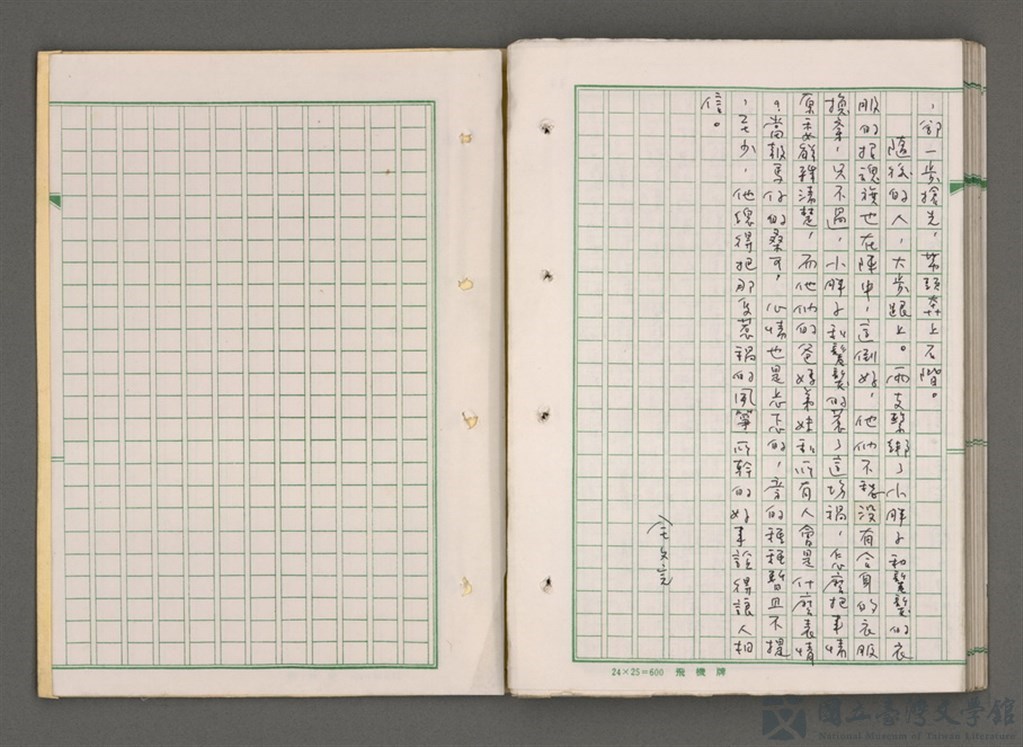 ，卻一步搶先，帶頭奔上石階。
隨後的人，大步跟上。兩支緊綁了小胖子和鬈鬈的衣
服的招魂旗也在陣中，這倒好，他們不愁沒有合身的衣服
換穿，只不過，小胖子和鬈鬈的惹了這場禍，怎麼把事情
原委解釋清楚，而他們的爸媽弟妹和所有人會是什麼表情
。當報馬仔的桑可，心情也是忐忑的，旁的種種暫且不提
，至少，他總得把那隻惹禍的風箏所幹的好事說得讓人相
信。
全文完
24×25=600 飛機牌
國立臺灣文學館
National Museum of Taiwan Literature